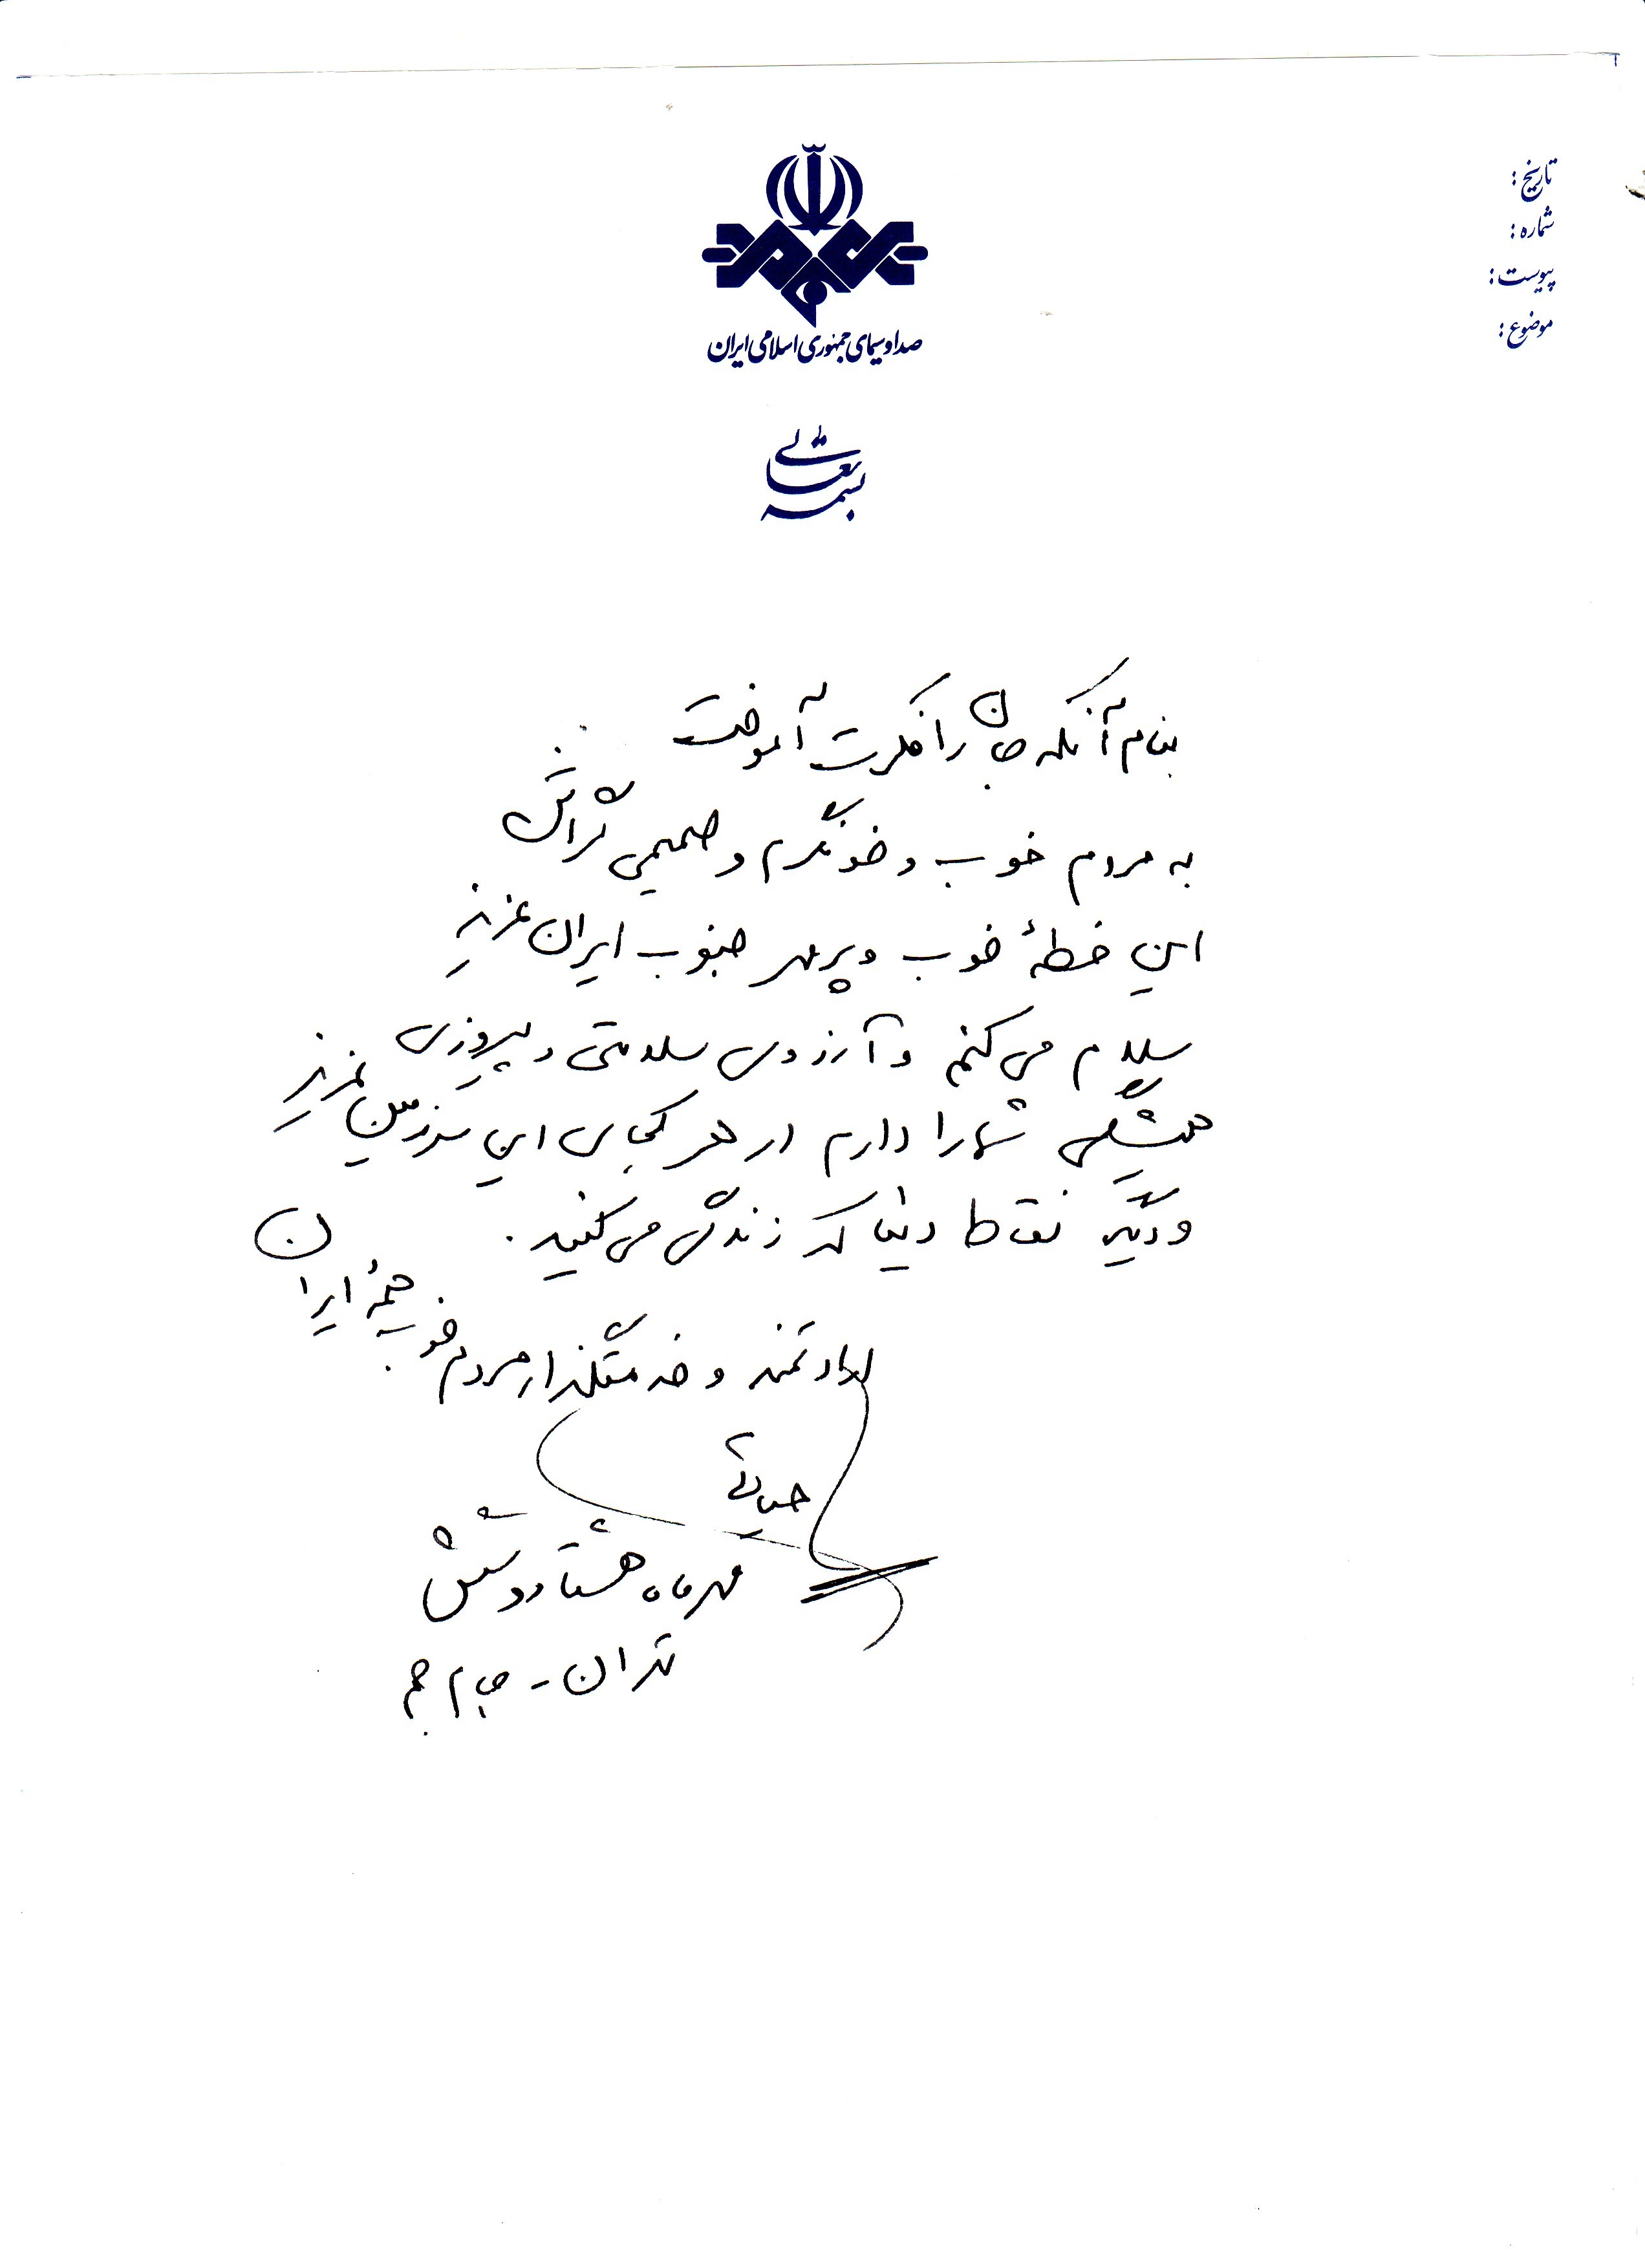 تاریخ:
شماره:
پیوست:
موضوع:
صدا و سیمای جمهوری اسلامی ایران
بسمه تعالی
بنام آنکه جان را فکرت آموخت
به مردم خوب و خونگرم و صمیمی گراش
این خطهٔ خوب و پرمهر جنوب ایران عزیز
سلام می‌کنم و آرزوی سلامتی و پیروزی
همیشگی شما را دارم در هر کجای این سرزمین عزیز
و دیگر نقاط دنیا که زندگی می‌کنید.
ارادتمند و خدمتگذار مردم خوب همهٔ ایران
حیاتی
مهرماه هشتاد و شش
تهران - جام جم